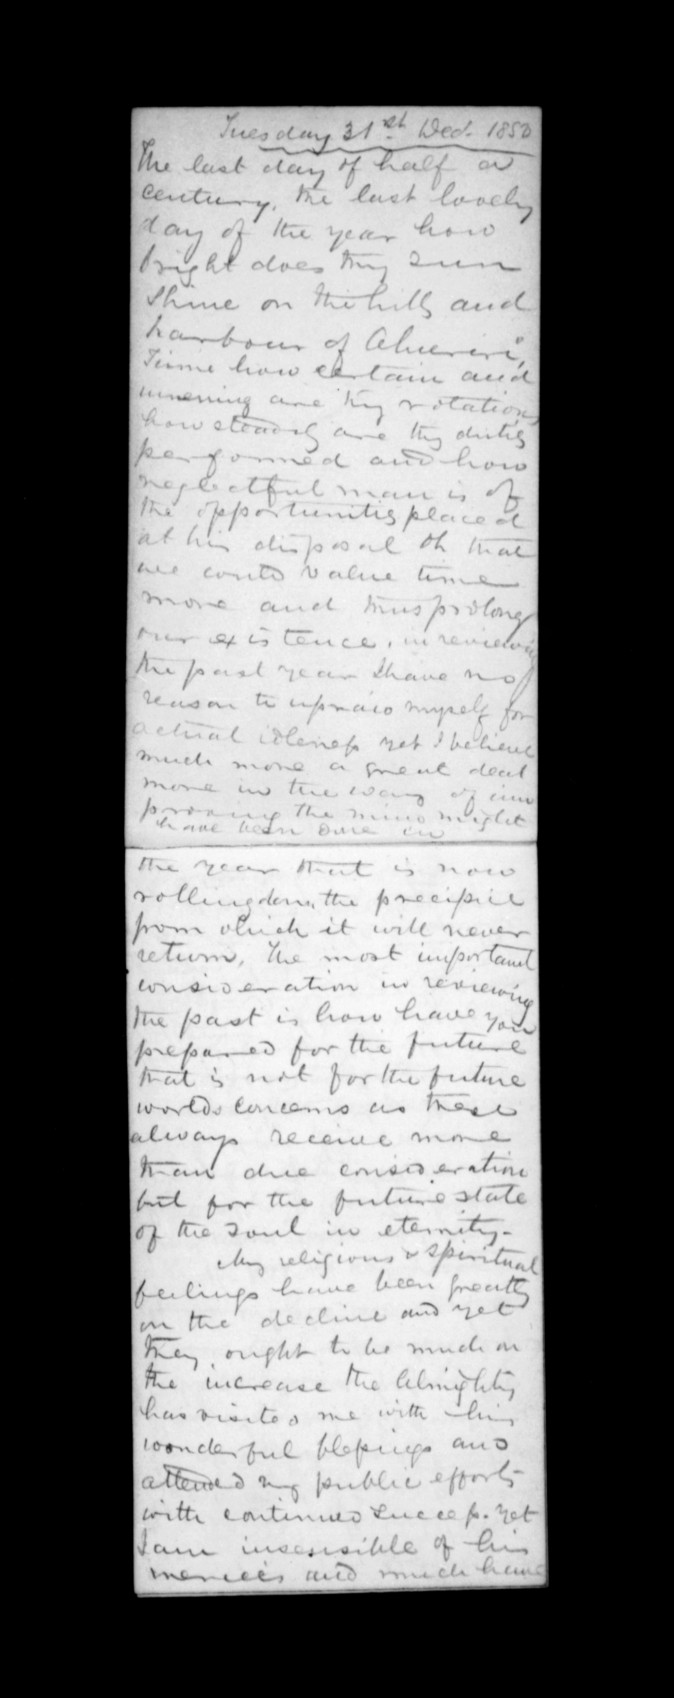 Tuesday 31st Dec. 1850
The last day of half a
century. The last lovely
day of the year how
bright does thy sun
shine on the hills and
harbour of Ahuriri,
Time how certain and
unerring are thy rotations
how steadily are thy duties
performed and how
neglectful man is of
the opportunities placed
at his disposal Oh that
we could value time
more and thus prolong
our existence, in reviewing
the past year I have no
reason to upraid myself for
actual idleness yet I believe
much more a great deal
more in the way of im
proving the mind might
have been done in
the year that is now
rolling down the precipice
from which it will never
return. The most important
consideration in reviewing
the past is how have you
prepared for the future
that is not for the future
worlds concerns as these
always receive more
than due consideration
but for the future state
of the soul in eternity.
My religious & spiritual
feelings have been greatly
on the decline and yet
they ought to be much on
the increase the Almighty
has visited me with his
wonderful blessings and
attended my public efforts
with continued success. Yet
I am insensible of his
mercies and much have